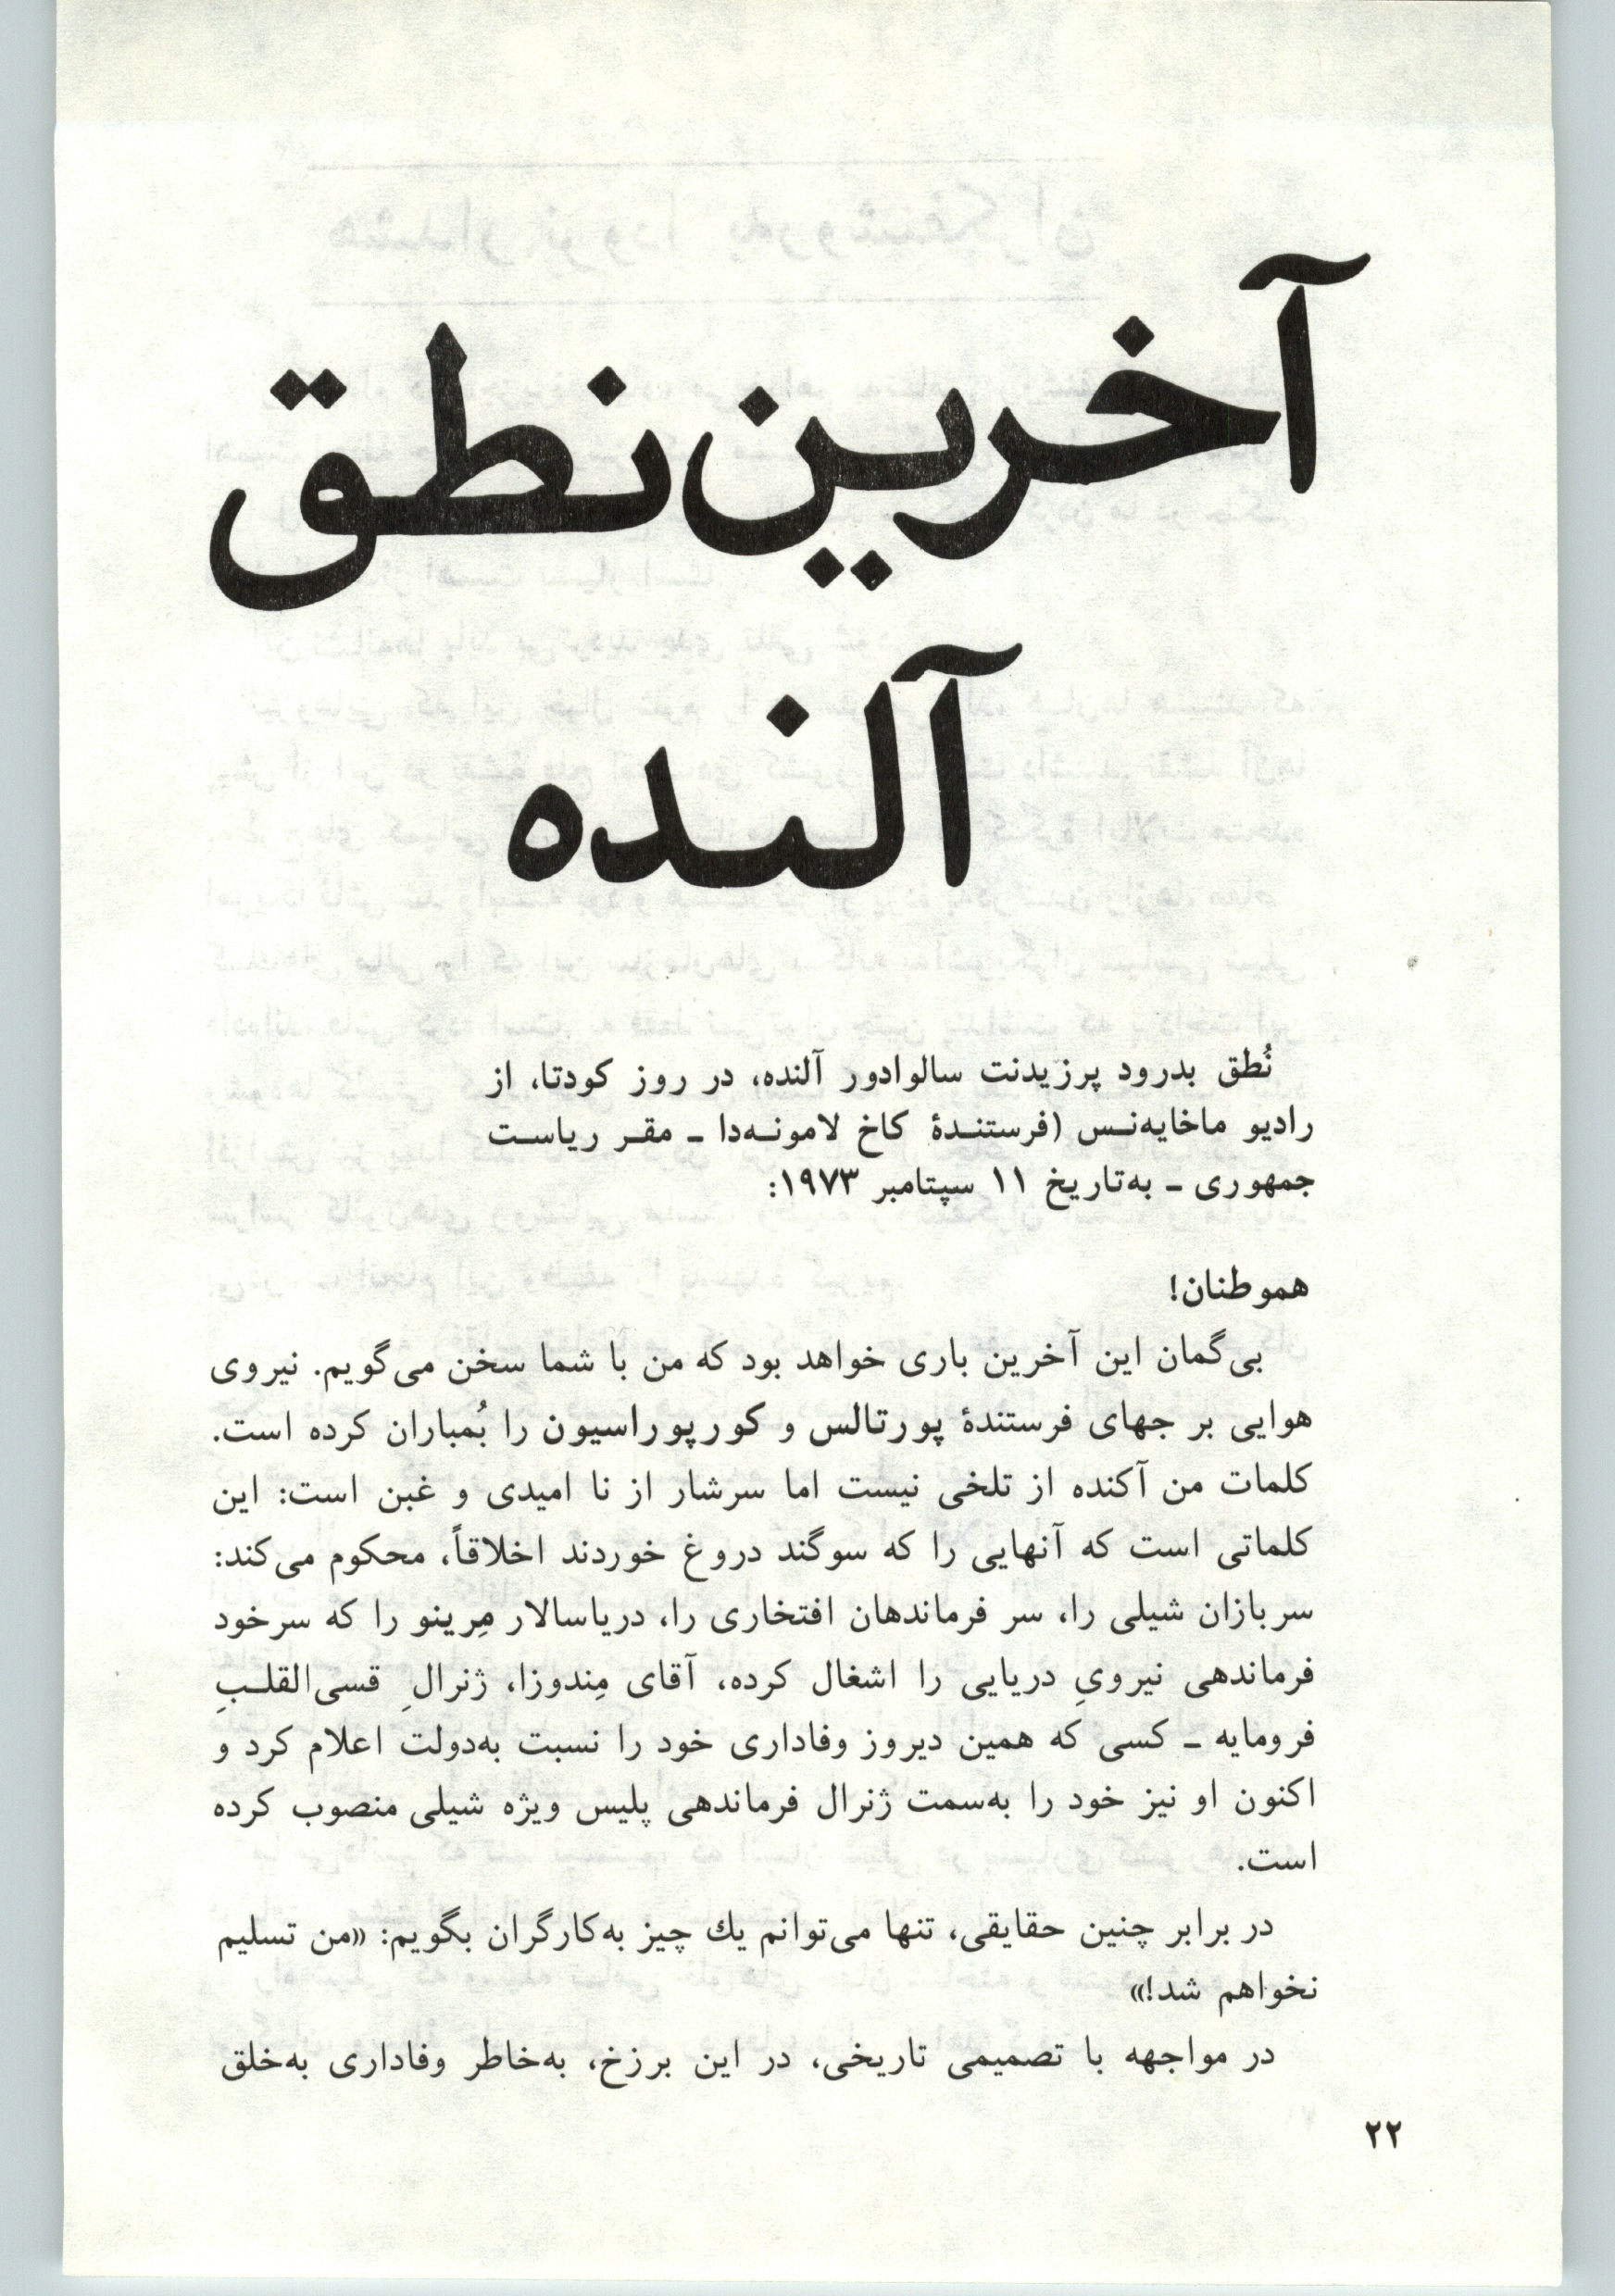 آخرین نطق
آلنده
نُطق بدرود پرزیدنت سالوادور آلنده، در روز کودتا، از
رادیو ماخایه‌نـس (فرستنـدهٔ کاخ لامونـه‌دا ـ مقـر ریاسـت
جمهوری ـ به‌تاریخ ۱۱ سپتامبر ۱۹۷۳:
هموطنان!
بی‌گمان این آخرین باری خواهد بود که من با شما سخن می‌گویم. نیروی
هوایی بر جهای فرستندهٔ پورتالس و کورپوراسیون را بُمباران کرده است.
کلمات من آکنده از تلخی نیست اما سرشار از نا امیدی و غبن است: این
کلماتی است که آنهایی را که سوگند دروغ خوردند اخلاقاً، محکوم می‌کند:
سربازان شیلی را، سر فرماندهان افتخاری را، دریاسالار مِرینو را که سرخود
فرماندهی نیرویِ دریایی را اشغال کرده، آقای مِندوزا، ژنرالِ قسی‌القلـبِ
فرومایه ـ کسی که همین دیروز وفاداری خود را نسبت به‌دولت اعلام کرد و
اکنون او نیز خود را به‌سمت ژنرال فرماندهی پلیس ویژه شیلی منصوب کرده
است.
در برابر چنین حقایقی، تنها می‌توانم یك چیز به‌کارگران بگویم: «من تسلیم
نخواهم شد!»
در مواجهه با تصمیمی تاریخی، در این برزخ، به‌خاطر وفاداری به‌خلق
۲۲